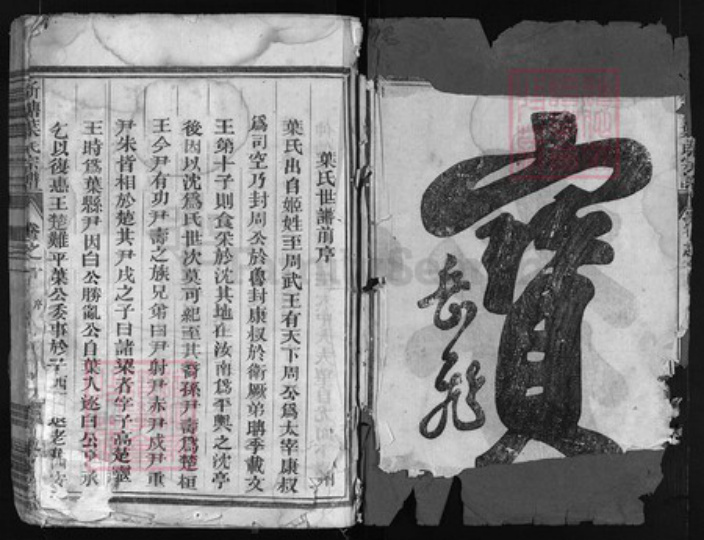 寶
岳飛
葉氏世譜前序
葉氏出自姬姓至周武王有天下周公爲太宰康叔
爲司空乃封周公於魯封康叔於衛厥弟聃季載文
王第十子則食采於沈其地在汝南爲平輿之沈亭
後因以沈爲氏世次莫可紀至其裔孫尹壽爲楚桓
王令尹有功尹壽之族兄弟曰尹射尹赤尹戌尹重
尹朱皆相於楚其尹戌之子曰諸梁者字子高楚
王時爲葉縣尹因白公勝亂公自葉入逐白公
乞以復惠王楚難平葉公委事於子西 老
葉氏宗譜
卷之